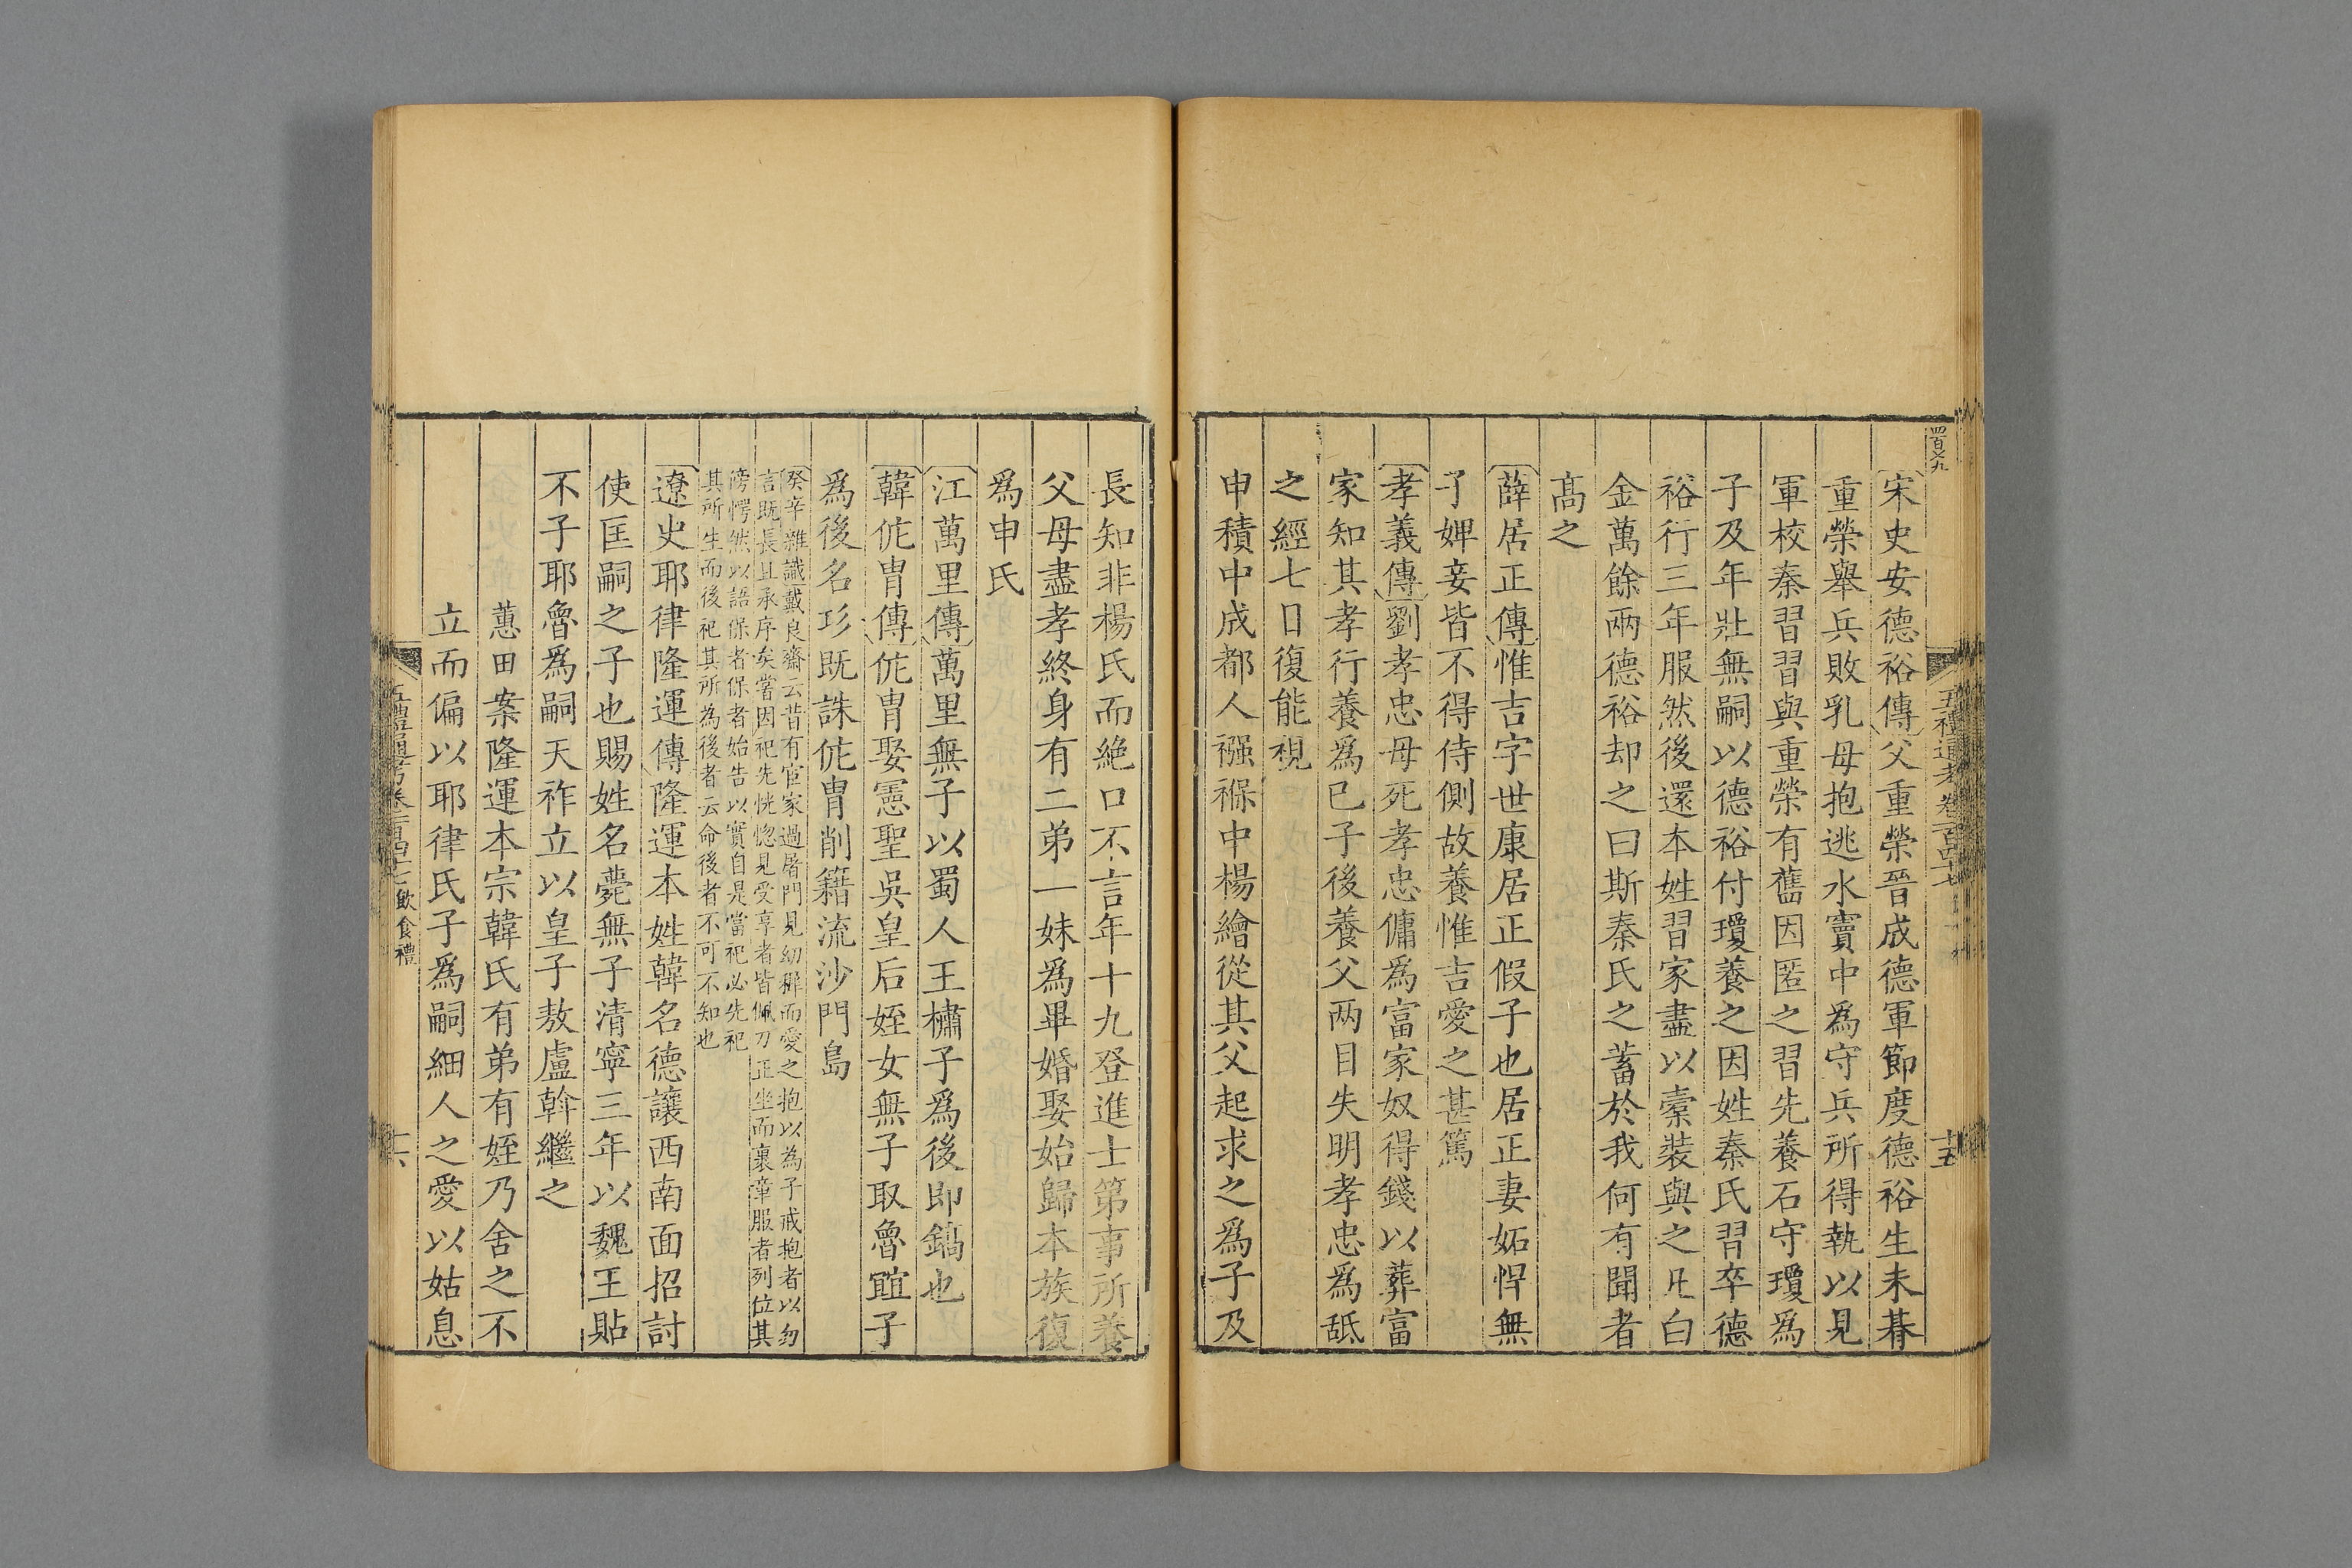 四百七九
五禮通考 卷一百四十七
十五
宋史安德裕傳父重榮晉成德軍節度德裕生未朞
重榮舉兵敗乳母抱逃水竇中爲守兵所得執以見
軍校秦習習與重榮有舊因匿之習先養石守瓊爲
子及年壯無嗣以德裕付瓊養之因姓秦氏習卒德
裕行三年服然後還本姓習家盡以槖裝與之凡白
金萬餘兩德裕却之曰斯秦氏之蓄於我何有聞者
高之
薛居正傳惟吉字世康居正假子也居正妻妬悍無
子婢妾皆不得侍側故養惟吉愛之甚篤
孝義傳劉孝忠母死孝忠傭爲富家奴得錢以葬富
家知其孝行養爲已子後養父兩目失明孝忠爲舐
之經七日復能視
申積中成都人襁褓中楊繪從其父起求之爲子及
長知非楊氏而絶口不言年十九登進士第事所養
父母盡孝終身有二弟一妹爲畢婚娶始歸本族復
爲申氏
江萬里傳萬里無子以蜀人王橚子爲後即鎬也
韓侂冑傳侂冑娶憲聖吳皇后姪女無子取魯𧨀子
爲後名㣉既誅侂冑削籍流沙門島
癸辛雜識戴良齋云昔有宦家過屠門見幼穉而愛之抱以為子戒抱者以勿
言既長且承序矣嘗因祀先恍惚見受享者皆佩刀正坐而裹章服者列位其
傍愕然以語保者保者始告以實自是當祀必先祀
其所生而後祀其所為後者云命後者不可不知也
遼史耶律隆運傳隆運本姓韓名德讓西南面招討
使匡嗣之子也賜姓名薨無子清寧三年以魏王貼
不子耶魯爲嗣天祚立以皇子敖盧斡繼之
蕙田案隆運本宗韓氏有弟有姪乃舍之不
立而偏以耶律氏子爲嗣細人之愛以姑息
五禮通考卷一百四十七 飲食禮
十六